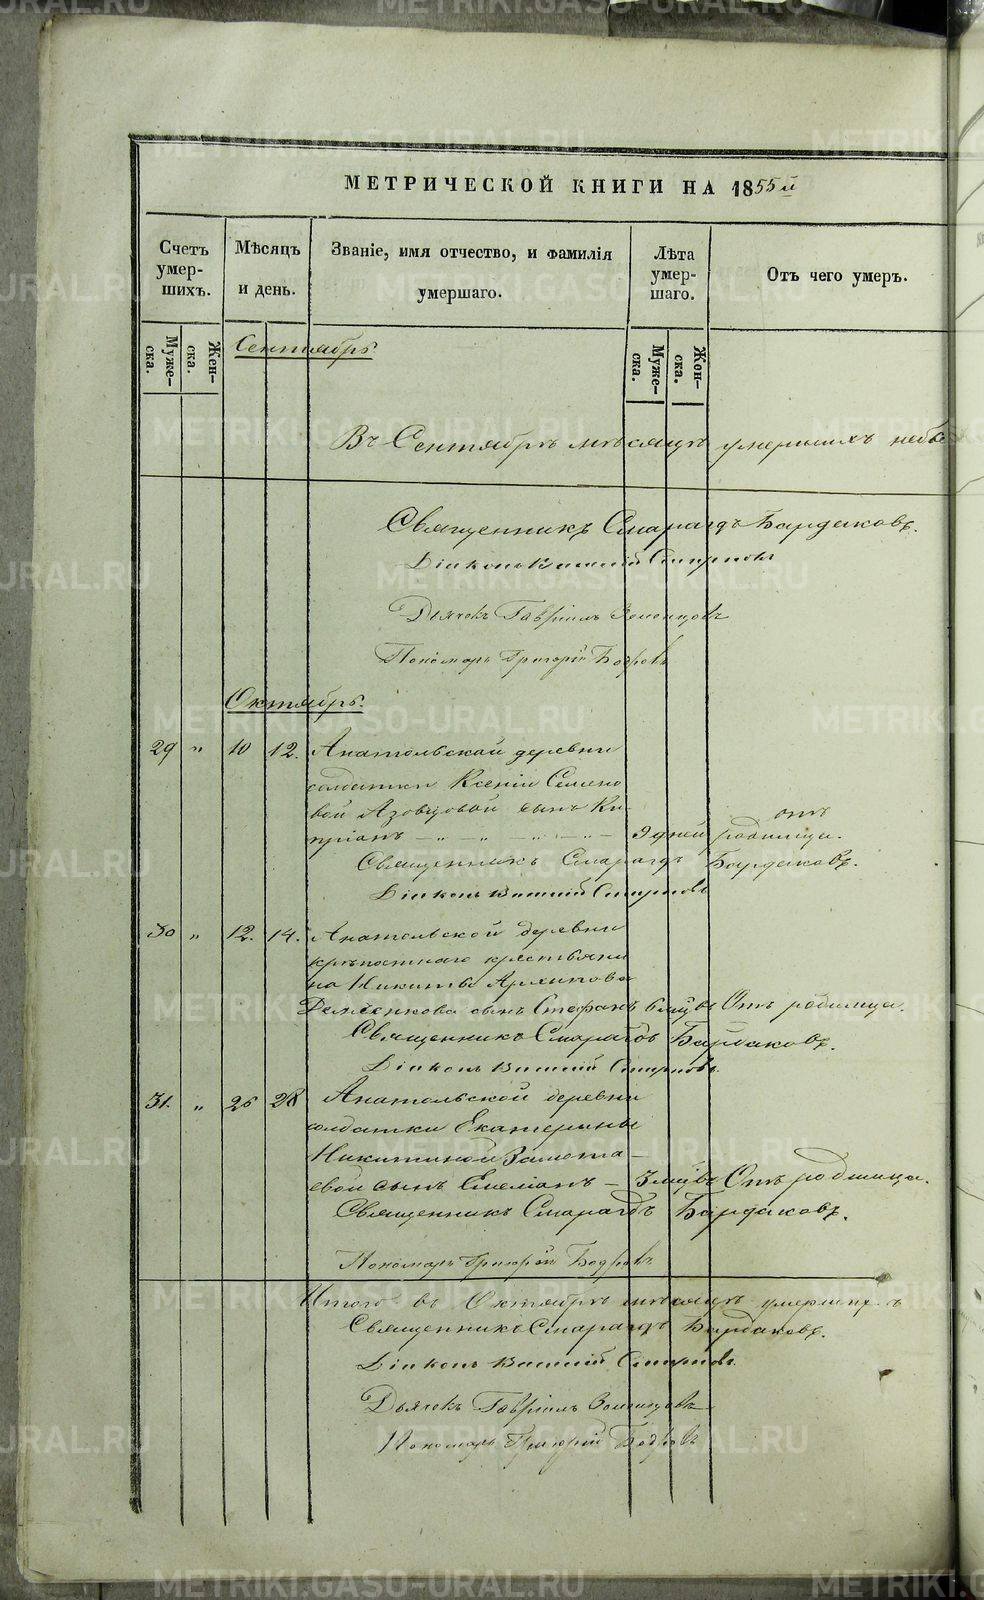 МЕТРИЧЕСКОЙ КНИГИ НА 1855й
Счетъ умер-шихъ.
Мѣсяцъ и день.
Званіе, имя отчество, и фамилія умершаго.
Лѣта умер-шаго.
Отъ чего умеръ.
Муже-ска.
Жен-ска.
Муже-ска.
Жен-ска.
Сентябрь.
Въ Сентябрѣ мѣсяцѣ умершихъ небы
Священникъ Смарагдъ Бардаковъ.
Діаконъ Смирновъ
Дьячекъ Гавріилъ
Пономарь Григорій Бодровъ
Октябрь.
29 " 10 12. Анатольской деревни
солдатки Ксеніи Семено
вой Азовцовой сынъ Ки-
пріанъ — 9 дней отъ родимца.
Священникъ Смарагдъ Бардаковъ.
Діаконъ Смирновъ
30 " 12. 14. Анатольской деревни
крѣпостнаго крестьяни
на Никиты Архипова
сынъ Стефанъ 6 мѣ Отъ родимца.
Священникъ Смарагдъ Бардаковъ.
Діаконъ Смирновъ.
31. " 26 28 Анатольской деревни
солдатки Екатерины
Никитиной
евой сынъ Емеліанъ — 3 мѣ Отъ родимца.
Священникъ Смарагдъ Бардаковъ.
Пономарь Григорій Бодровъ.
Итого въ Октябрѣ мѣсяцѣ умершихъ
Священникъ Смарагдъ Бардаковъ.
Діаконъ Смирновъ.
Дьячекъ Гавріилъ
Пономарь Григорій Бодровъ
METRIKI.GASO-URAL.RU